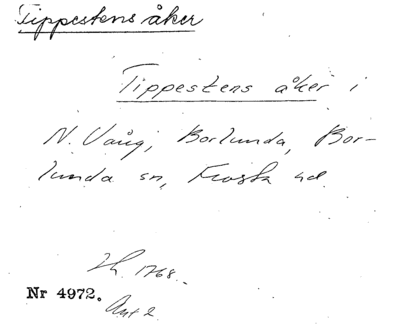 Tippestens åker
Tippestens åker i
N. Vång, Borlunda, Bor-
lunda sn, Frosta hd.
1768.
Nr 4972.
Akt 2